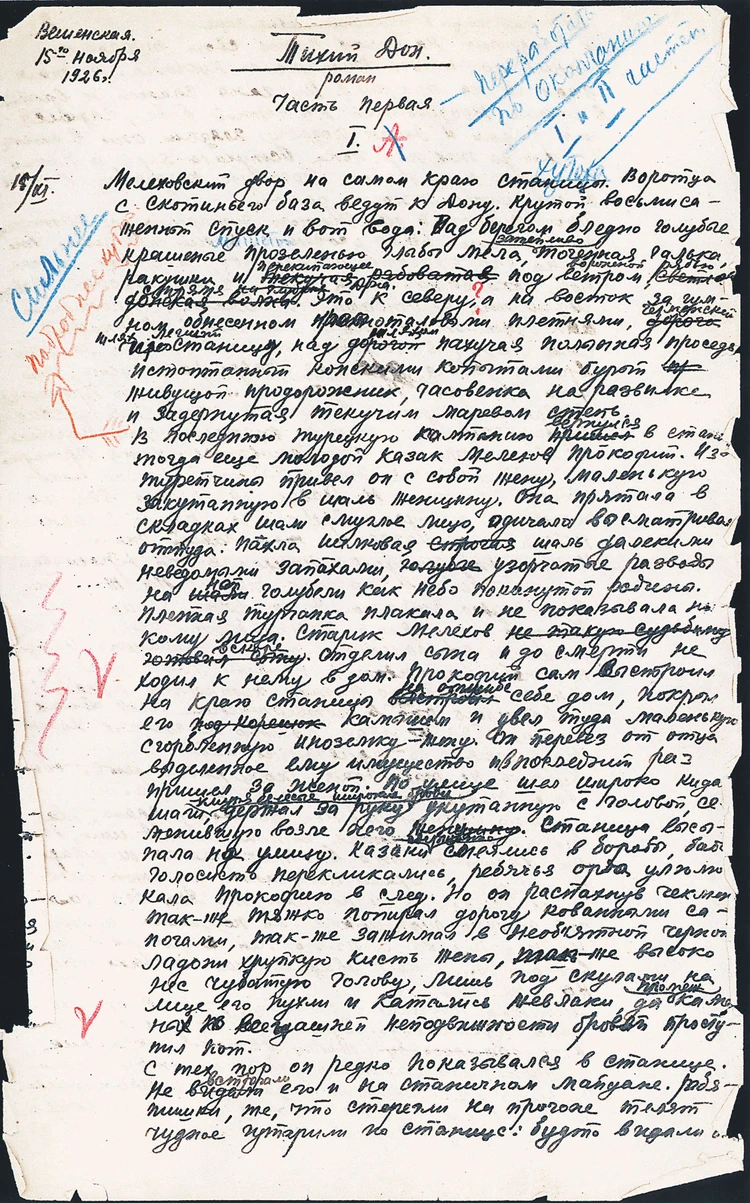 Вешенская.
15го ноября
1926 г.
Тихий Дон.
роман
Часть первая
I.
— Переработать
по окончании
I и II частей.
хутора
15/XI.
Мелеховский двор на самом краю станицы. Воротца
с скотиньего база ведут к Дону. Крутой восьмиса-
женный спуск и вот вода: Над берегом бледно голубые
крашеные прозеленью глыбы мела, точенная галька,
ракушки и перекипающее под ветром
стремя Дона. Это к северу, а на восток за гум-
ном обнесенном красноталовыми плетнями,
станицу, над пахучая полынная проседь
истоптанный конскими копытами бурый
живущой продорожник, часовенка на развилке
и задернутая текучим маревом степь.
Сильнее
подробнее
?
В последнюю турецкую кампанию вернулся в стан
тогда еще молодой казак Мелехов Прокофий. Из-
Туретчины привел он с собой жену, маленькую
закутанную в шаль женщину. Она прятала в
складках шали смуглое лицо, одичало высматривая
оттуда: пахла шелковая строгая шаль далекими
неведомыми запахами, узорчатые разводы
на ней голубели как небо покинутой родины.
Пленная турчанка плакала и не показывала ни-
кому лица. Старик Мелехов не такую судьбину
готовил сыну. вскоре отделил сына и до смерти не
ходил к нему в дом. Прокофий сам выстроил
на краю станицы на отшибе себе дом, покрыл
его под корешок камышом и увел туда маленькую
сгорбленную иноземку-жену. Он перевез от отца
выделенное ему имущество и в последний раз
пришел за женой. По улице шел широко кидая
шаги, держал за руку укутанную с головой, се-
менившую возле него женщину. Станица высы-
пала на улицу. Казаки смеялись в бороды, бабы
голосисто перекликались, ребячья орда улюлю
кала Прокофию в след. Но он распахнув чекмен
так-же тяжко попирал дорогу кованными са-
погами, так-же зажимал в необъятной черной
ладони хрупкую кисть жены, так-же высоко
нес чубатую голову, лишь под скулами на
лице его пухли и катались желваки, да промеж каме
ных по всегдашней неподвижности бровей просту-
пил пот.
С тех пор он редко показывался в станице.
Не видали его и на станичном майдане. Ребя-
тишки, те, что стерегли на прогоне телят
чудное гутарили по станице: будто видали